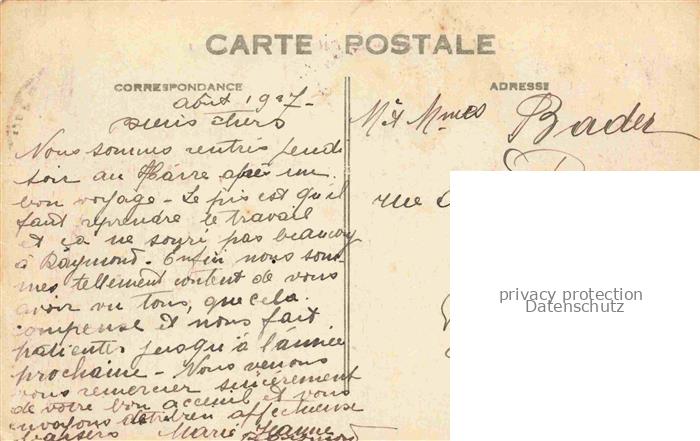 CARTE POSTALE
CORRESPONDANCE
ADRESSE
août 1927-
Biens chers
Nous sommes rentrés jeudi
soir au Hâvre après un
bon voyage - Le pis est qu'il
faut reprendre le travail
et ça ne souri pas beaucoup
à Raymond. Enfin nous som-
mes tellement content de vous
avoir vu tous, que cela
compense et nous fait
patienter jusqu'à l'année
prochaine - Nous venons
vous remercier sincèrement
de votre bon acceuil et vous
envoyons de bien affectueuse
baisers Marie Jeanne
Raymond
Mr & Mmes Bader
rue
privacy protection
Datenschutz